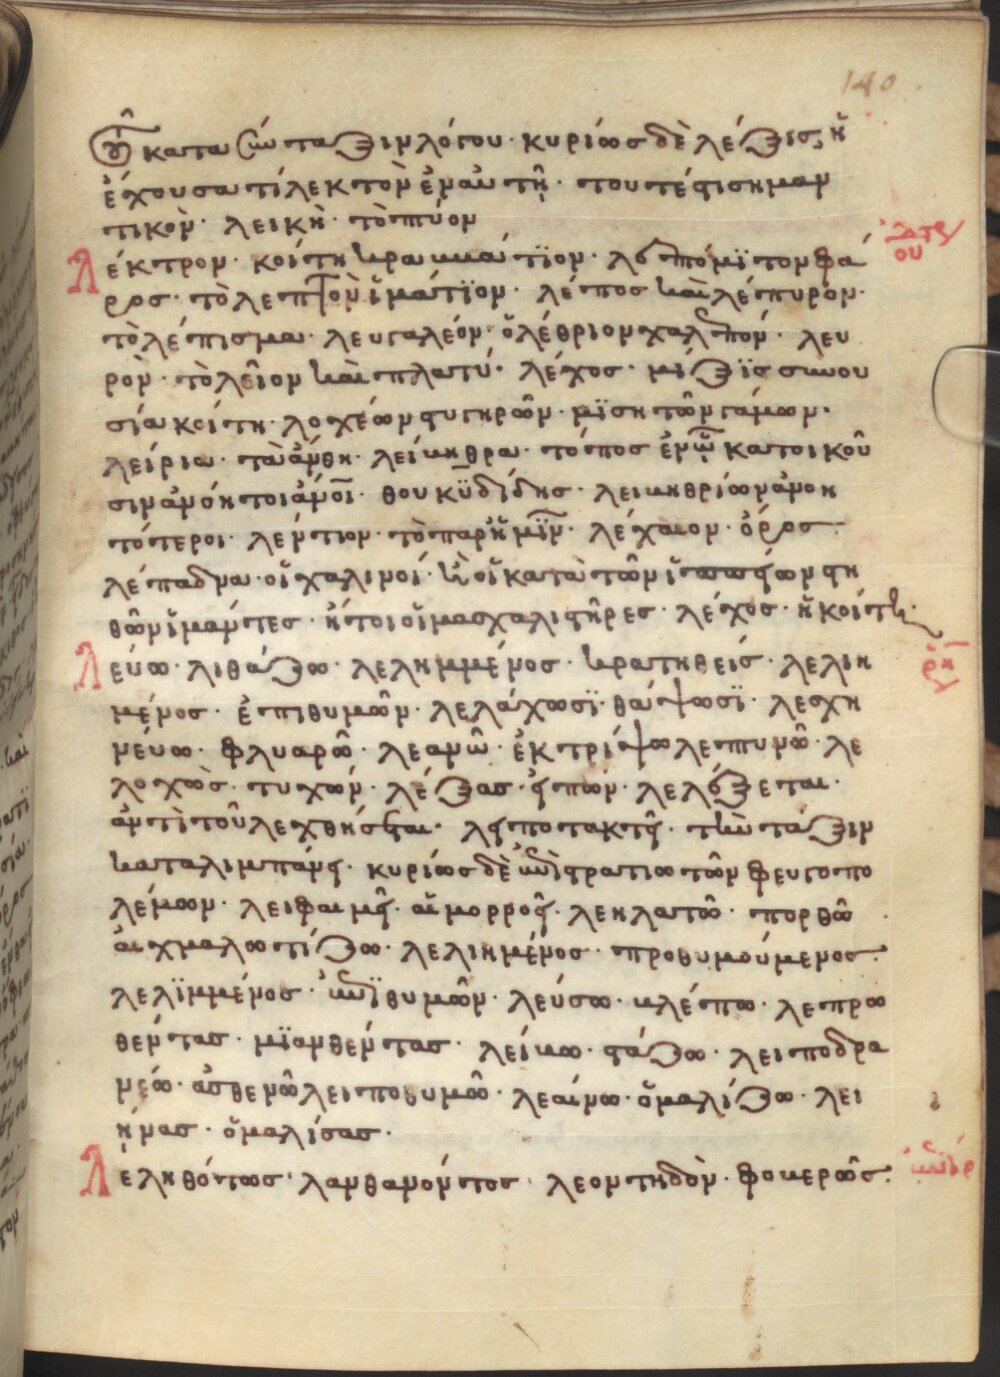 140
κατα σύνταξιν λόγου· κυρίως δὲ λέξις, ἡ
ἔχουσα τί λεκτὸν ἐν αὑτῆ· τουτέστι σημαν
τικόν· λεικὴ· τὸ πτύον
Λέκτρον· κοίτη κραμμάτϊον· λεπτόμϊτον φά
ρος· τὸ λεπτὸν ἱμάτϊον· λέπος καὶ λέπυρον·
τὸ λέπισμα· λευγαλέον· ὀλέθριον χαλεπόν· λευ
ρὸν· τὸ λεῖον καὶ πλατύ· λέχος· μίξϊς συνου
σία κοίτη· λοχέων στυγηρῶν· μϊσητῶν γάμων·
λείρια· τὰ ἄνθη· λείμηθρα· τόπος ἐν ᾧ κατοικοῦ
σιν
θουκϋδίδης· λειμηθρίων ἀνοη
τότεροι· λέντιον· τὸ παρ' ἡμῖν· λέχαιον· ὄρος·
λέπαδνα· οἱ χαλινοί· καὶ οἱ κατὰ τῶν στη
θῶν ἱμάντες· ἤτοι οἱ μασχαλιστῆρες· λέχος· ἡ κοίτη·
Λεύω· λιθάζω· λελημμένος· κρατηθείς· λελιη
μένος· ἐπιθυμῶν· λελάχωσϊ· θάψωσϊ· λεσχη
νεύω· φλυαρῶ· λεανῶ· ἐκτρίψω λεπτυνῶ· λε
λοχὼς· τυχών· λέξας· εἰπών· λελέξεται·
ἀντὶ τοῦ λεχθήσεται· λειποτακτεῖ· τὴν τάξιν
καταλιμπάνει· κυρίως δὲ ἐπὶ στρατιωτῶν φευγοπο
λέμων· λειφαιμεῖ· αἱμορροεῖ· λεηλατῶ· πορθῶ
αἰχμαλωτίζω· λελιημένος· προθυμούμενος·
λελϊμμένος· ἐπϊθυμῶν· λεύσω· βλέπω· λεπρω
θέντας· μϊανθέντας· λείβω· στάζω· λειποδρα
νέω· ἀσθενῶ λειποθυμῶ· λεαίνω· ὁμαλίζω· λει
ήνας· ὁμαλίσας·
Λεληθότως· λανθανόντος· λεοντηδὸν· φοβερῶς·